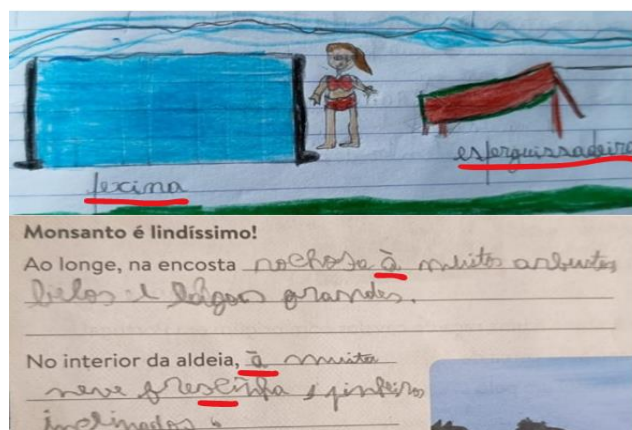 esferguissadeira
fexina
Monsanto é lindíssimo!
Ao longe, na encosta rochosa à muitos arbustos
belos e lagos grandes.
No interior da aldeia, à muita
neve frescinha e pinheiros
inclinados